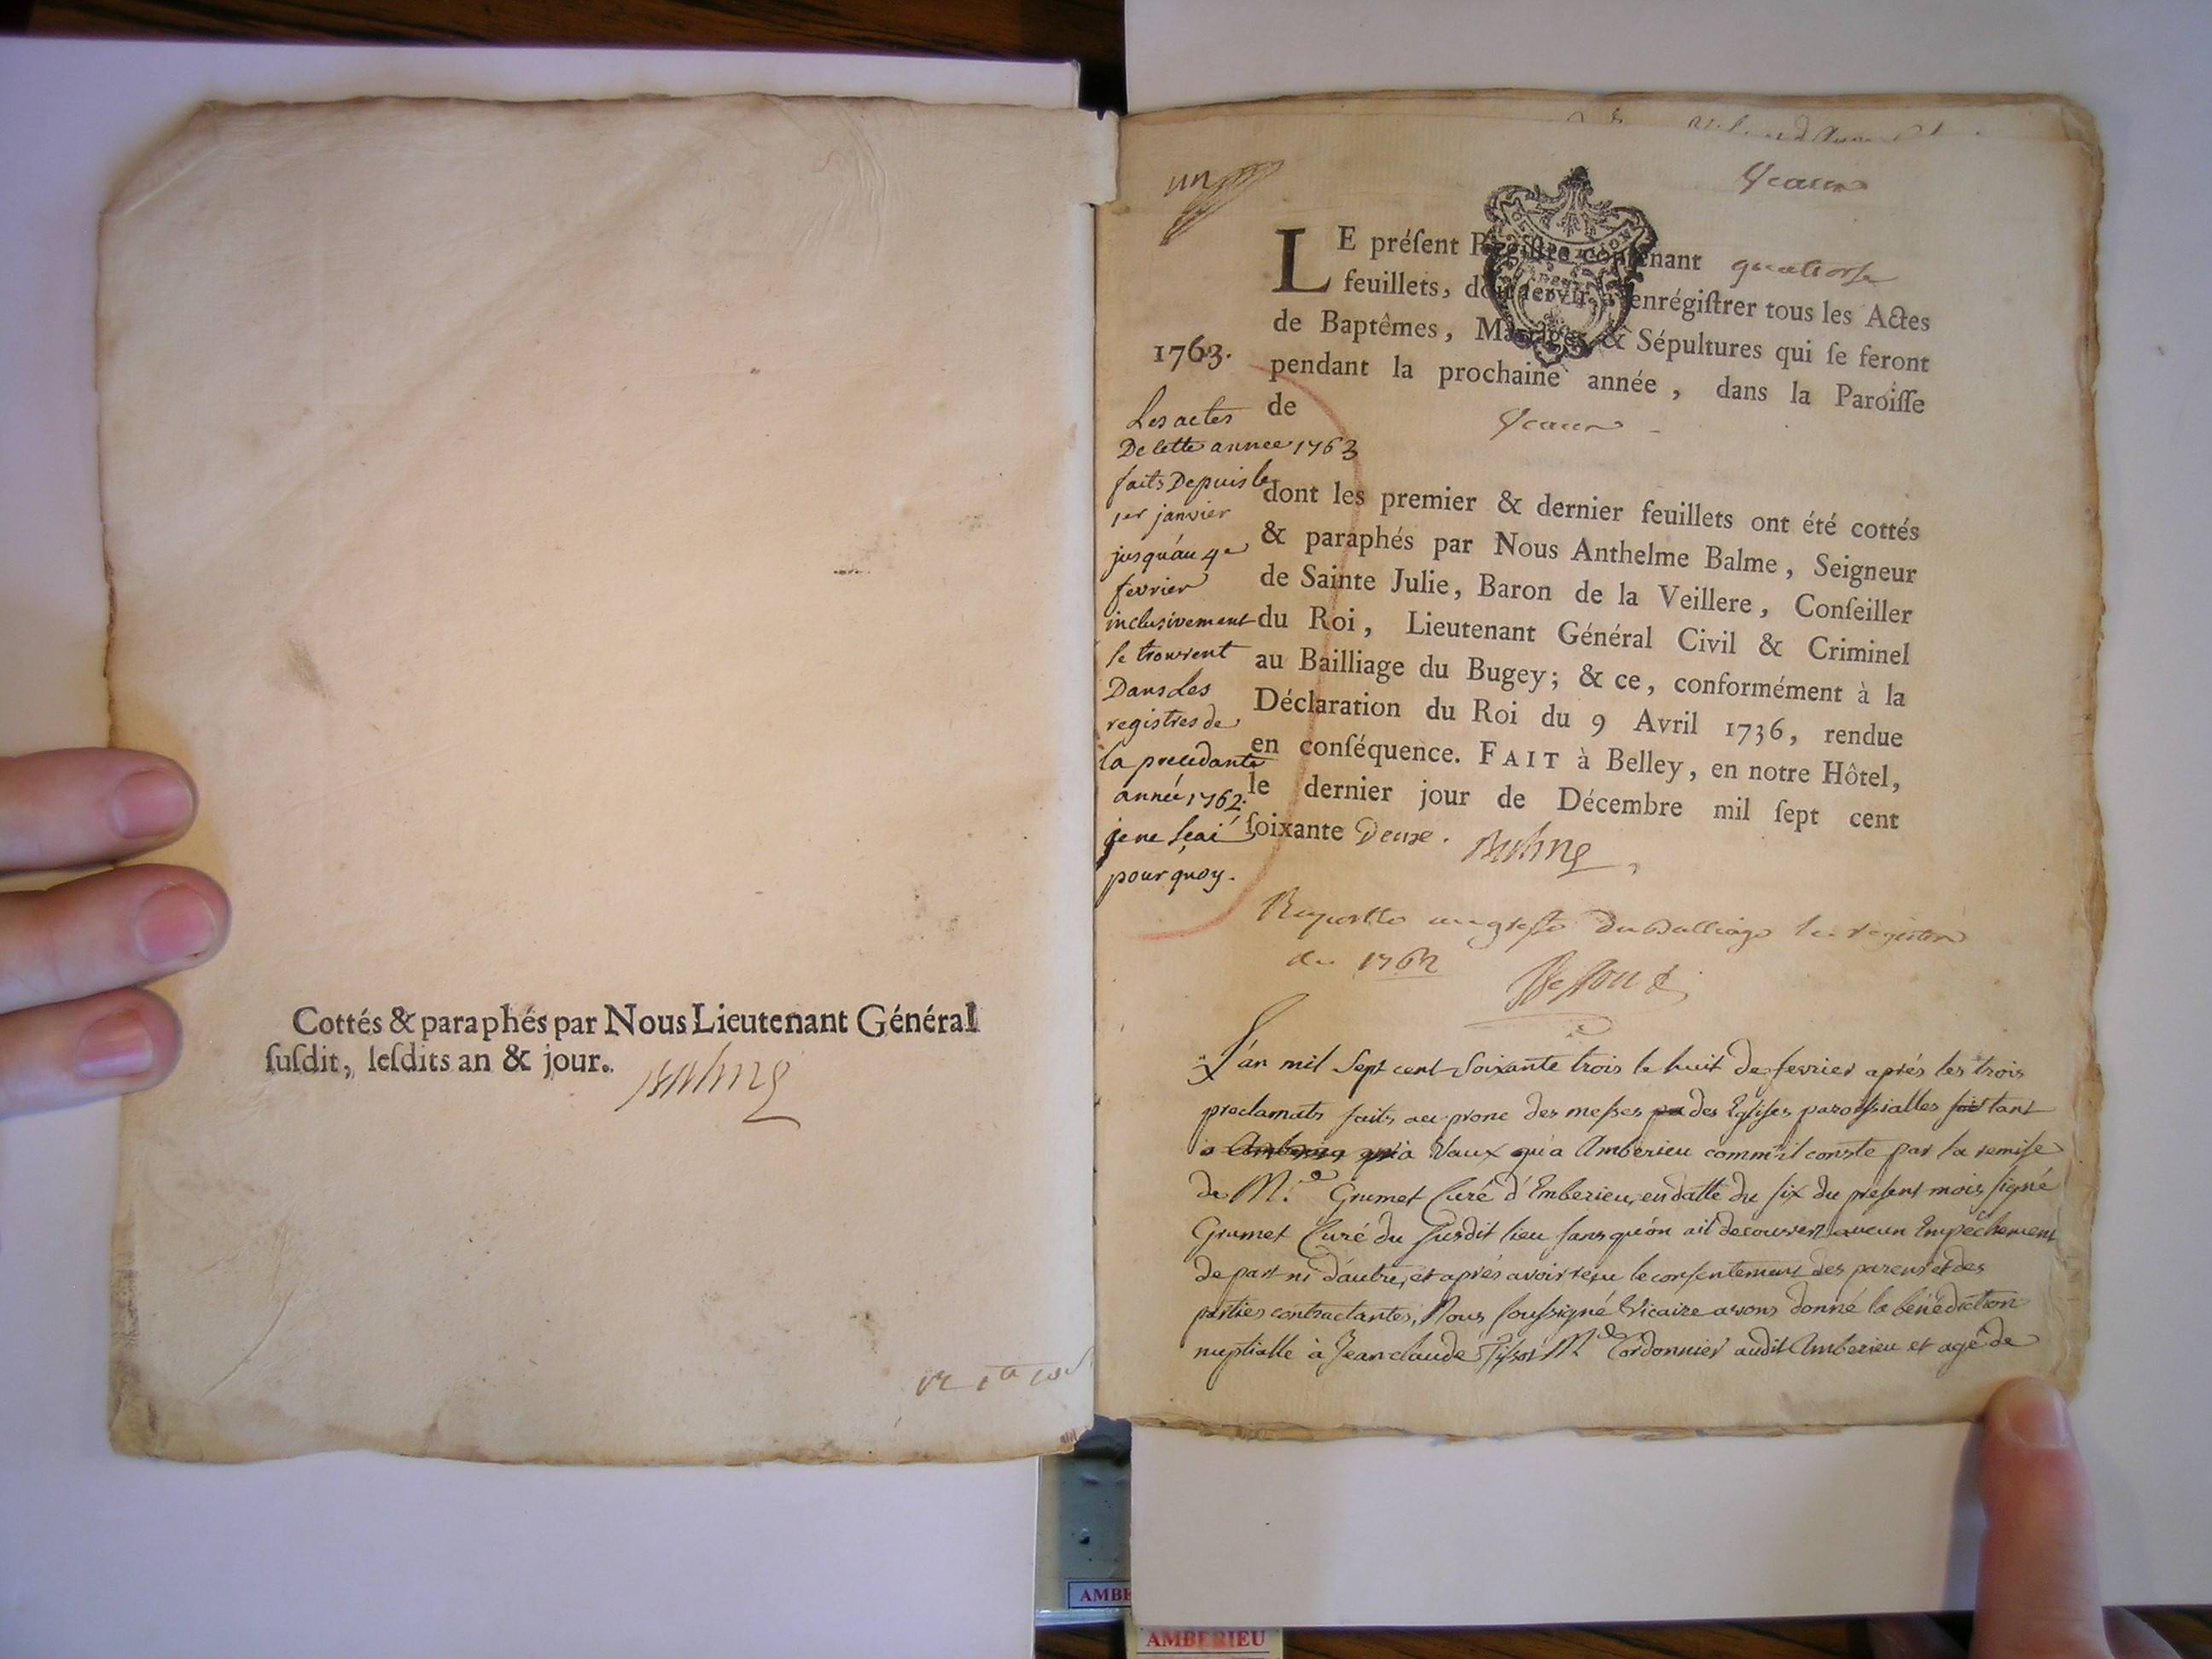 Cottés & paraphés par Nous Lieutenant Général
ſuſdit, leſdits an & jour.
un
LE préſent Regiſtre contenant quatorſe
feuillets, doit servir à enrégiſtrer tous les Actes
de Baptêmes, Mariages & Sépultures qui ſe feront
pendant la prochaine année, dans la Paroiſſe
de
dont les premier & dernier feuillets ont été cottés
& paraphés par Nous Anthelme Balme, Seigneur
de Sainte Julie, Baron de la Veillere, Conſeiller
du Roi, Lieutenant Général Civil & Criminel
au Bailliage du Bugey; & ce, conformément à la
Déclaration du Roi du 9 Avril 1736, rendue
en conſéquence. FAIT à Belley, en notre Hôtel,
le dernier jour de Décembre mil ſept cent
ſoixante Deuxe. Balme
1763.
Les actes
De cette année 1763
faits Depuis le
1er janvier
jusqu'au 4e
fevrier
inclusivement
se trouvent
Dans Les
registres de
la precedante
année 1762.
je ne sçai
pourquoy.
du Balliage le registre
de 1762
L'an mil Sept cent Soixante trois le huit de fevrier aprés les trois
proclamats faits au prone des messes des Eglises paroissialles tant
a Vaux qu'a Amberieu comm'il conste par la remise
de M.e Grumet Curé d'Emberieu, en datte du six du present mois signé
Grumet Curé du susdit lieu sans qu'on ait decouvert aucun Empêchement
de part ni d'autre, et aprés avoir reçu le consentement des parens et des
parties contractantes, Nous soussigné Vicaire avons donné la bénédiction
nuptialle à Jean claude Tissot M.e Cordonnier audit Amberieu et agé de
AMBE
AMBERIEU